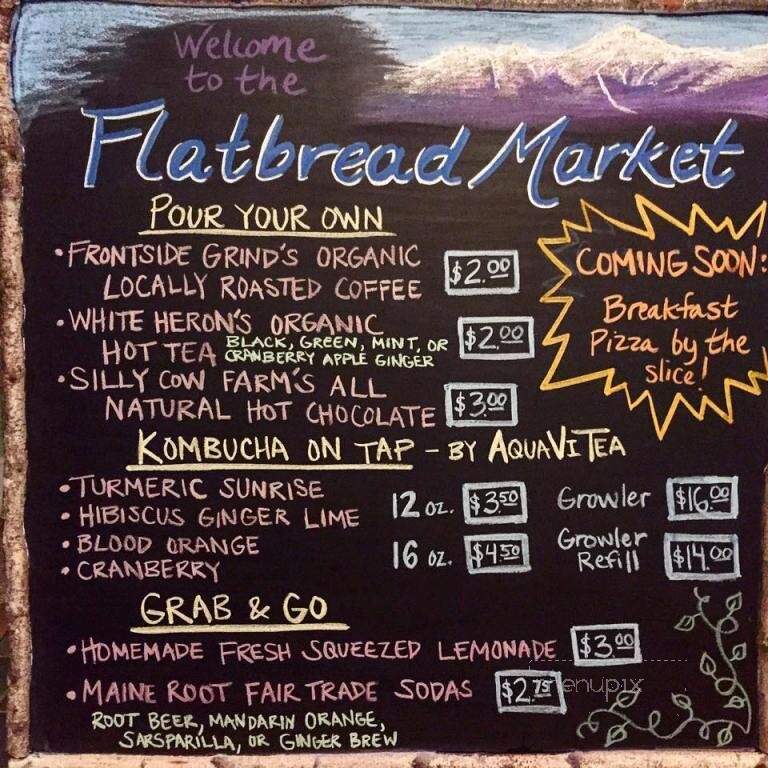 Welcome
to the
Flatbread Market
POUR YOUR OWN
• FRONTSIDE GRIND'S ORGANIC
LOCALLY ROASTED COFFEE $2.00
• WHITE HERON'S ORGANIC
HOT TEA BLACK, GREEN, MINT, OR
CRANBERRY APPLE GINGER $2.00
• SILLY COW FARM'S ALL
NATURAL HOT CHOCOLATE $3.00
COMING SOON:
Breakfast
Pizza by the
slice!
KOMBUCHA ON TAP - BY AQUAVITEA
• TURMERIC SUNRISE
• HIBISCUS GINGER LIME
• BLOOD ORANGE
• CRANBERRY
12 oz. $3.50 Growler $16.00
16 oz. $4.50 Growler
Refill $14.00
GRAB & GO
• HOMEMADE FRESH SQUEEZED LEMONADE $3.00
• MAINE ROOT FAIR TRADE SODAS $2.75
ROOT BEER, MANDARIN ORANGE,
SARSPARILLA, OR GINGER BREW
menupix